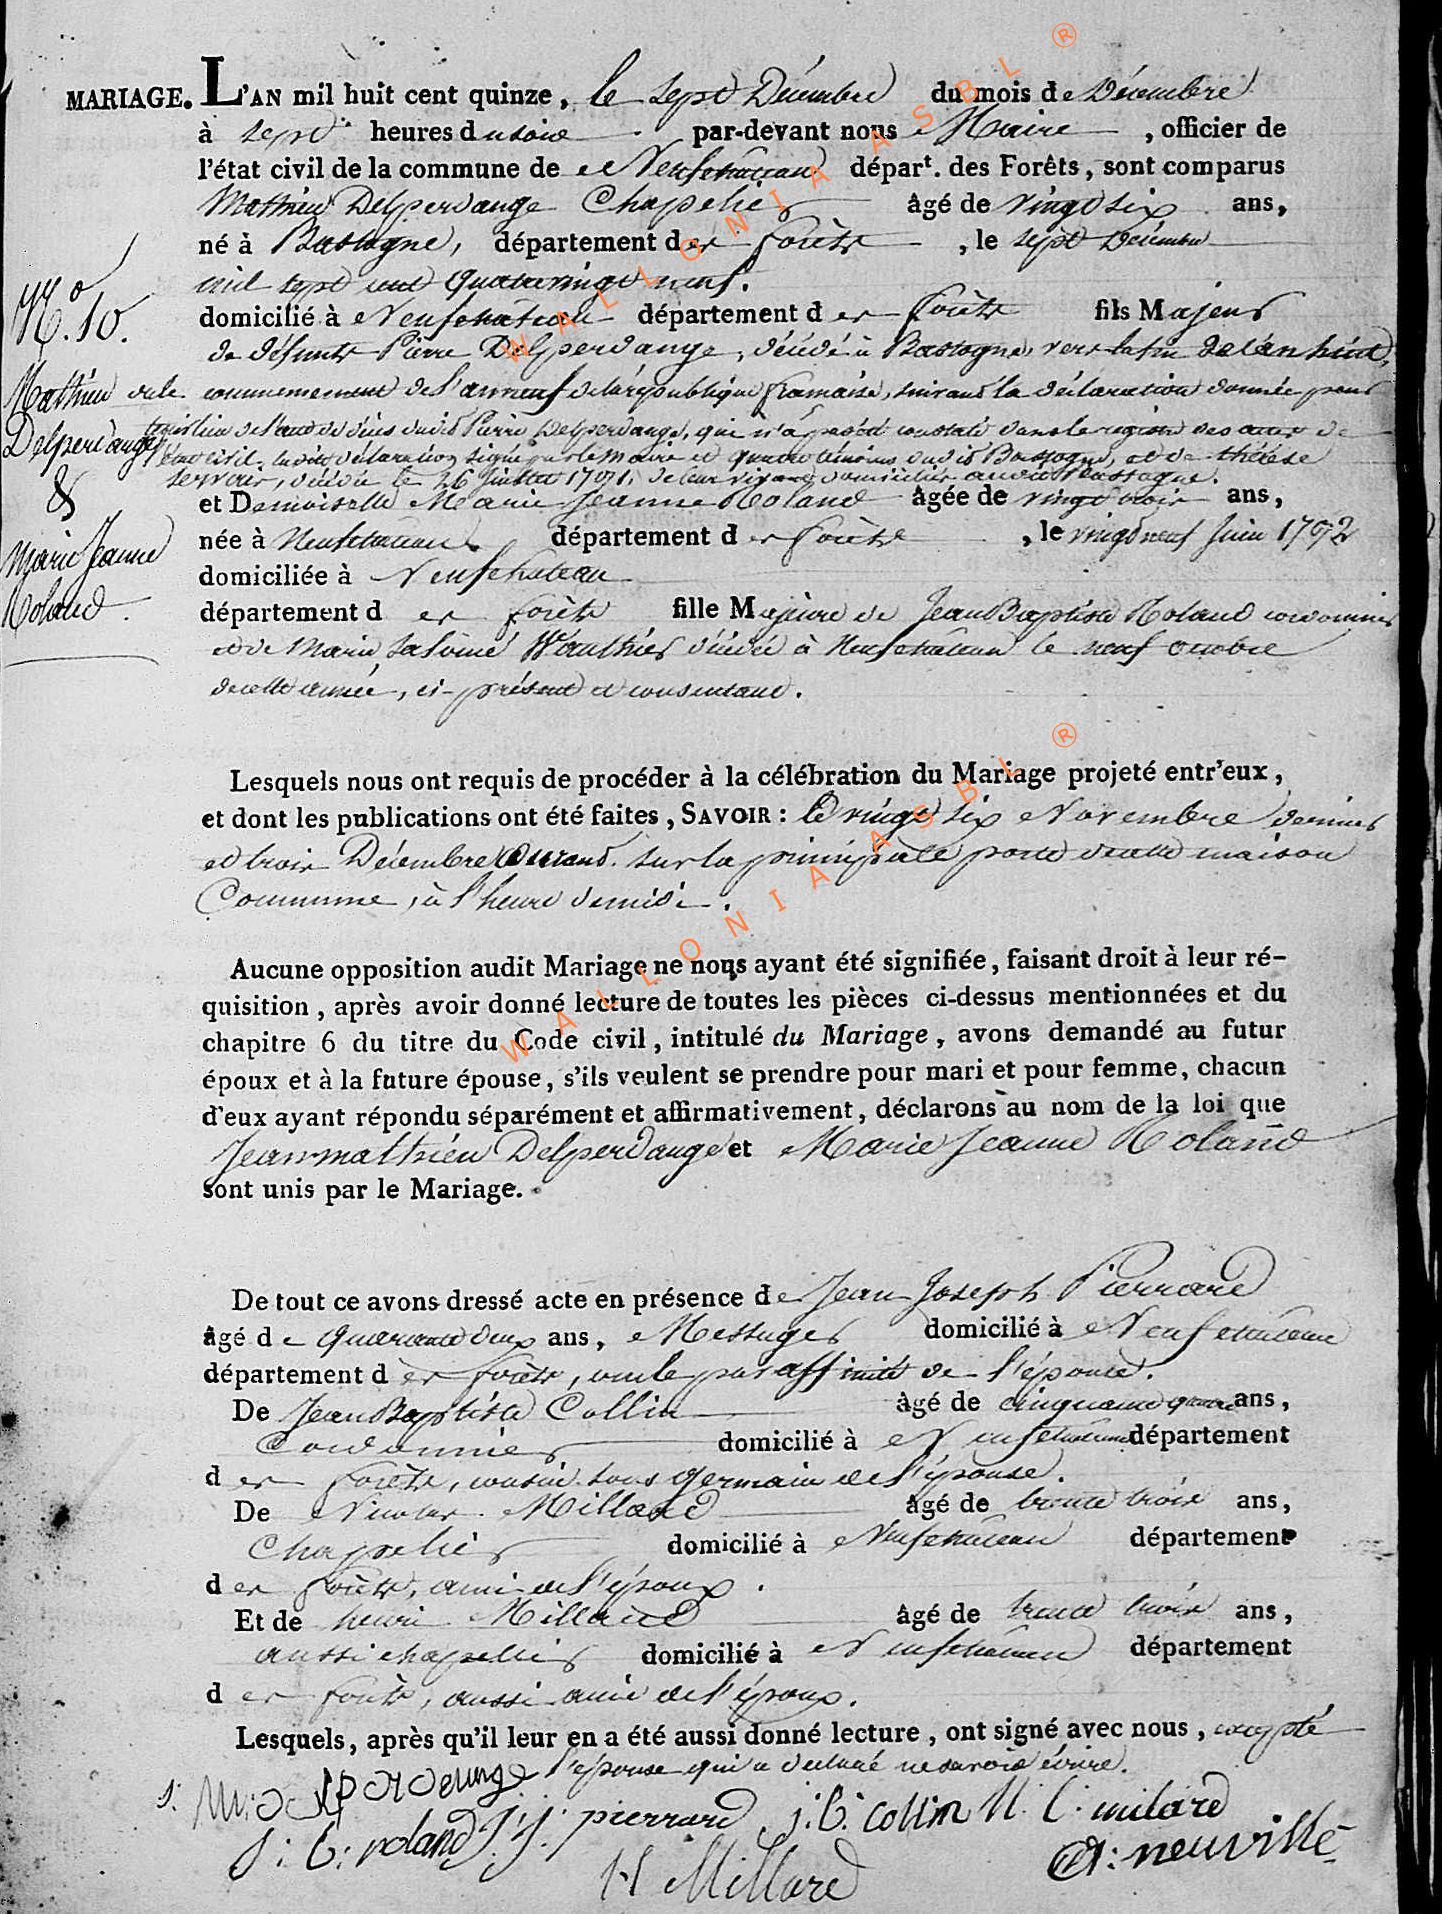 MARIAGE. L'AN mil huit cent quinze, le sept Décembre du mois de Décembre
à sept heures du soir par-devant nous Maire, officier de
l'état civil de la commune de Neufchateau départ. des Forêts, sont comparus
Mathieu Delperdange Chapelier âgé de vingt six ans,
né à Bastogne, département des Forêts, le sept Décembre
mil sept cent quatrevingt neuf.
domicilié à Neufchateau département des Forêts fils Majeur
de défunts Pierre Delperdange, décédé à Bastogne, vers la fin de l'an huit,
commencement de l'an neuf de la république française, suivant la déclaration donnée pour
tenir lieu de l'acte de décès dudit Pierre Delperdange, qui n'a pas été constaté dans le registre des actes de
l'état civil, ladite déclaration signée par le Maire et quatre témoins dudit Bastogne, et de thérèse
Servais, décédée le 26 Juillet 1791, de leur vivant domiciliés audit Bastogne.
et Demoiselle Marie Jeanne Roland âgée de vingt trois ans,
née à Neufchateau département des Forêts, le vingt neuf Juin 1792
domiciliée à Neufchateau
département des forêts fille Majeure de Jean Baptiste Roland cordonnier
et de Marie Salomé Wauthier décédée à Neufchateau le neuf octobre
de cette année, ci-présent et consentant.
N.° 10.
Mathieu
Delperdange
&
Marie Jeanne
Roland.
Lesquels nous ont requis de procéder à la célébration du Mariage projeté entr'eux,
et dont les publications ont été faites, SAVOIR : le vingt six Novembre dernier
et trois Décembre Courant. sur la principale porte de cette maison
Commune, à l'heure de midi.
Aucune opposition audit Mariage ne nous ayant été signifiée, faisant droit à leur ré-
quisition, après avoir donné lecture de toutes les pièces ci-dessus mentionnées et du
chapitre 6 du titre du Code civil, intitulé du Mariage, avons demandé au futur
époux et à la future épouse, s'ils veulent se prendre pour mari et pour femme, chacun
d'eux ayant répondu séparément et affirmativement, déclarons au nom de la loi que
Jean mathieu Delperdange et Marie Jeanne Roland
sont unis par le Mariage.
De tout ce avons dressé acte en présence de Jean Joseph Pierrard
âgé de Quarante deux ans, Messager domicilié à Neufchateau
département des forêts, oncle par affinité de l'épouse.
De Jean Baptiste Collin âgé de cinquante quatre ans,
Cordonnier domicilié à Neufchateau département
des forêts, cousin sous germain de l'épouse.
De Nicolas Millard âgé de trente trois ans,
Chapelier domicilié à Neufchateau département
des forêts, ami de l'époux.
Et de henri Millard âgé de trente trois ans,
aussi chapelier domicilié à Neufchateau département
des forêts, aussi ami de l'époux.
Lesquels, après qu'il leur en a été aussi donné lecture, ont signé avec nous, excepté
l'épouse qui a declaré ne savoir écrire.
J: B: roland J: J: pierrard j: B: collin N. C: milard
H Millard A: neuville
WALLONIA ASBL ®
WALLONIA ASBL ®